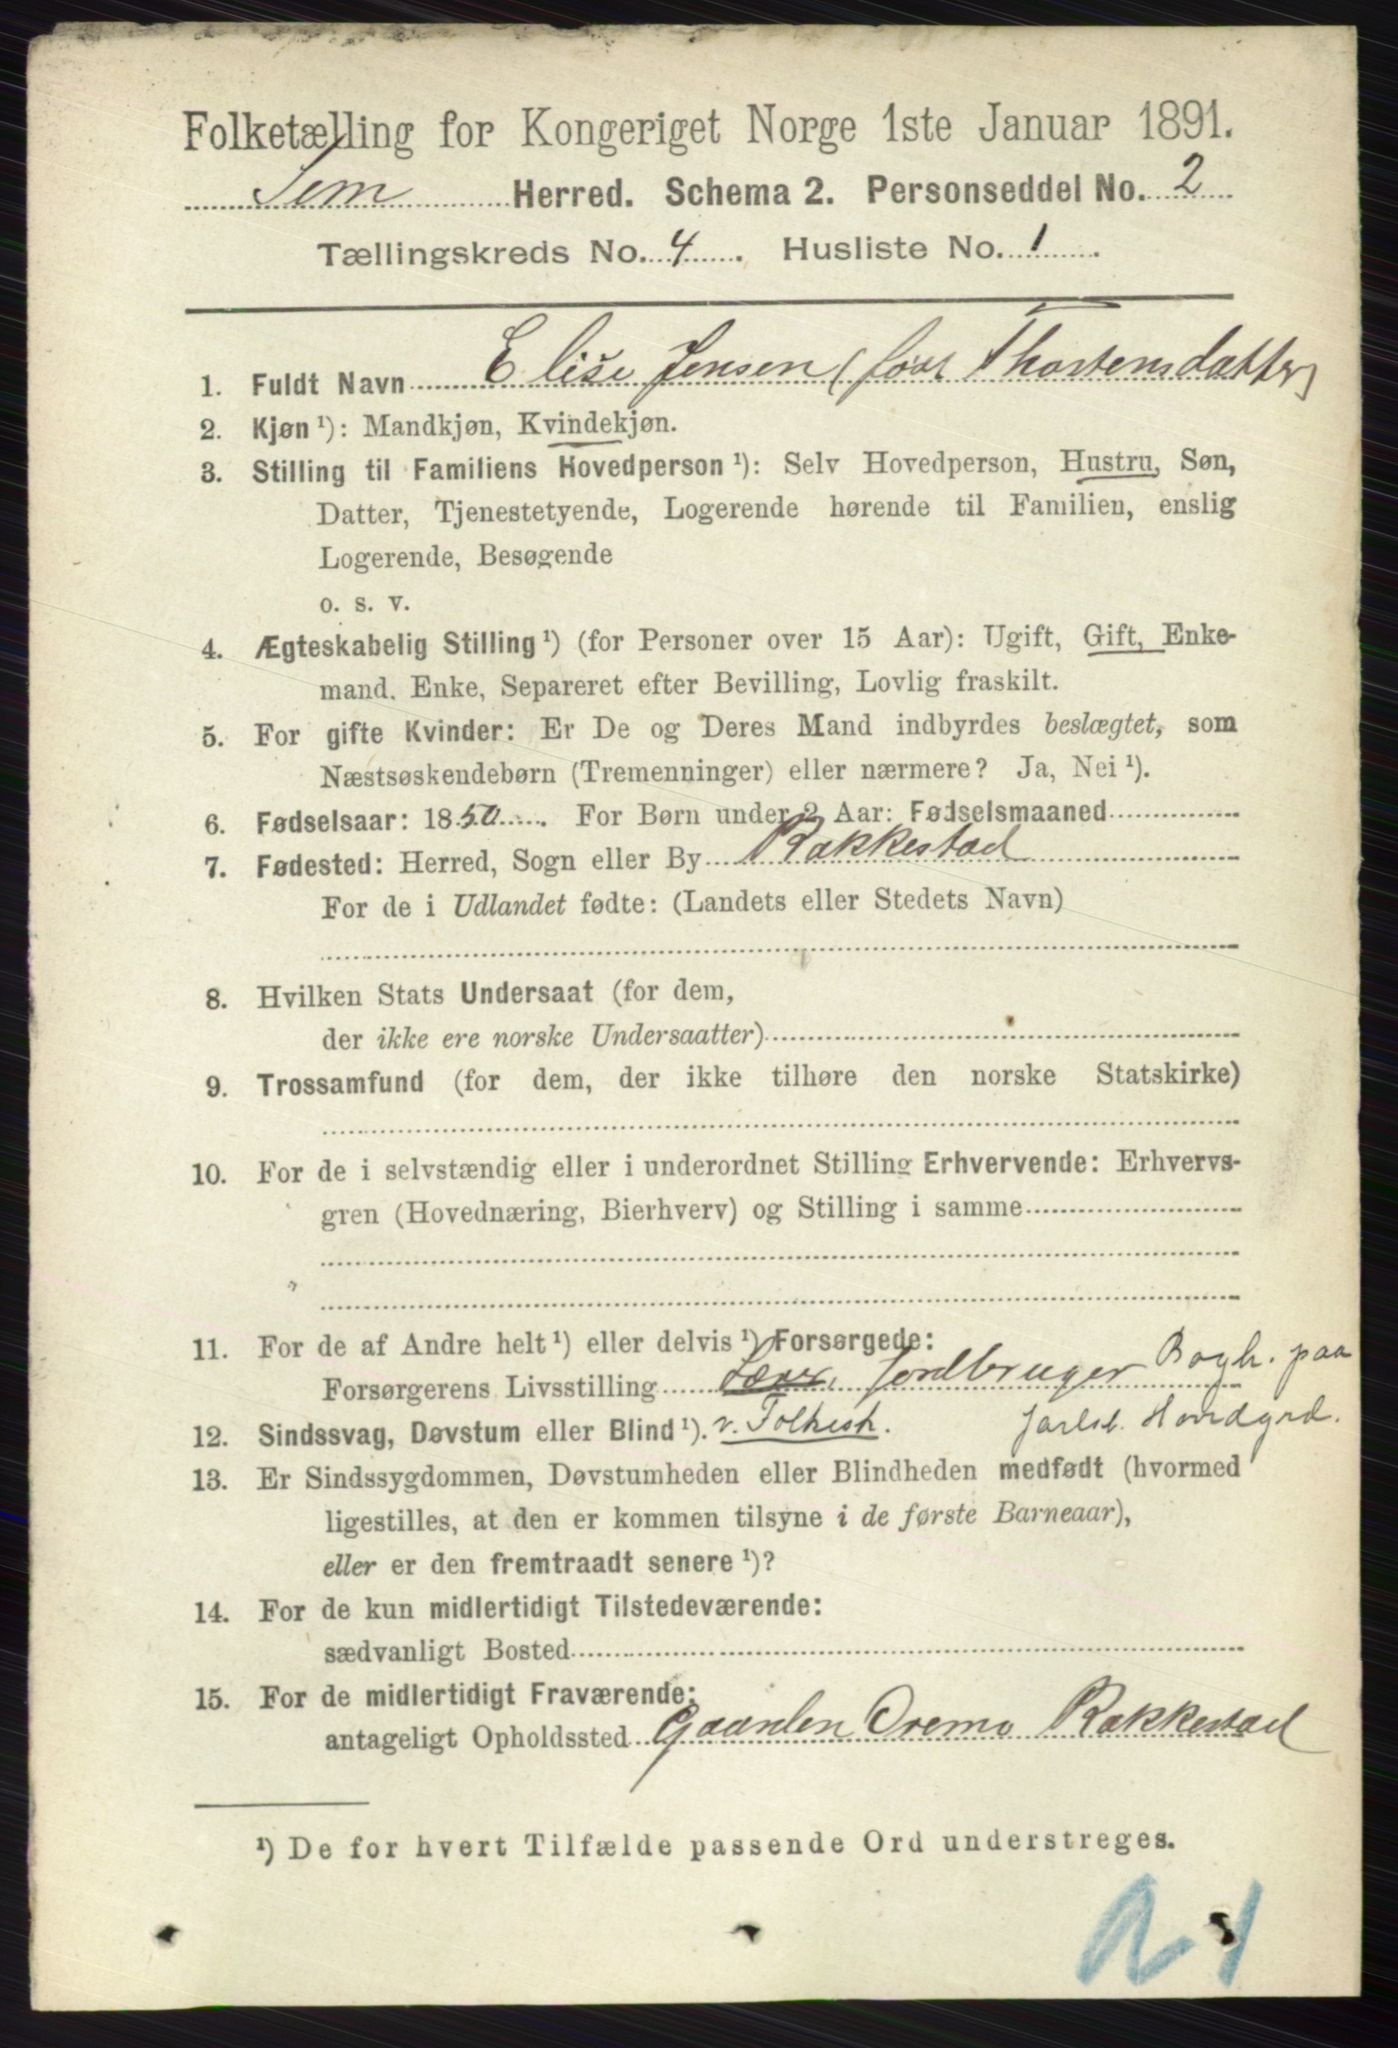 Folketælling for Kongeriget Norge 1ste Januar 1891.
Sem Herred. Schema 2. Personseddel No. 2
Tællingskreds No. 4. Husliste No. 1.
1. Fuldt Navn Elise Jensen (født Thorstensdatter)
2. Kjøn ¹): Mandkjøn, Kvindekjøn.
3. Stilling til Familiens Hovedperson ¹): Selv Hovedperson, Hustru, Søn,
Datter, Tjenestetyende, Logerende hørende til Familien, enslig
Logerende, Besøgende
o. s. v.
4. Ægteskabelig Stilling ¹) (for Personer over 15 Aar): Ugift, Gift, Enke-
mand, Enke, Separeret efter Bevilling, Lovlig fraskilt.
5. For gifte Kvinder: Er De og Deres Mand indbyrdes beslægtet, som
Næstsøskendebørn (Tremenninger) eller nærmere? Ja, Nei ¹).
6. Fødselsaar: 1850. For Børn under 2 Aar: Fødselsmaaned
7. Fødested: Herred, Sogn eller By Rakkestad
For de i Udlandet fødte: (Landets eller Stedets Navn)
8. Hvilken Stats Undersaat (for dem,
der ikke ere norske Undersaatter)
9. Trossamfund (for dem, der ikke tilhøre den norske Statskirke)
10. For de i selvstændig eller i underordnet Stilling Erhvervende: Erhvervs-
gren (Hovednæring, Bierhverv) og Stilling i samme
11. For de af Andre helt ¹) eller delvis ¹) Forsørgede:
Forsørgerens Livsstilling Lærer, Jordbruger Bogh. paa
12. Sindssvag, Døvstum eller Blind ¹). v. Folkesk. Jarlsb. Hovdgrd.
13. Er Sindssygdommen, Døvstumheden eller Blindheden medfødt (hvormed
ligestilles, at den er kommen tilsyne i de første Barneaar),
eller er den fremtraadt senere ¹)?
14. For de kun midlertidigt Tilstedeværende:
sædvanligt Bosted
15. For de midlertidigt Fraværende:
antageligt Opholdssted Gaarden Rakkestad
¹) De for hvert Tilfælde passende Ord understreges.